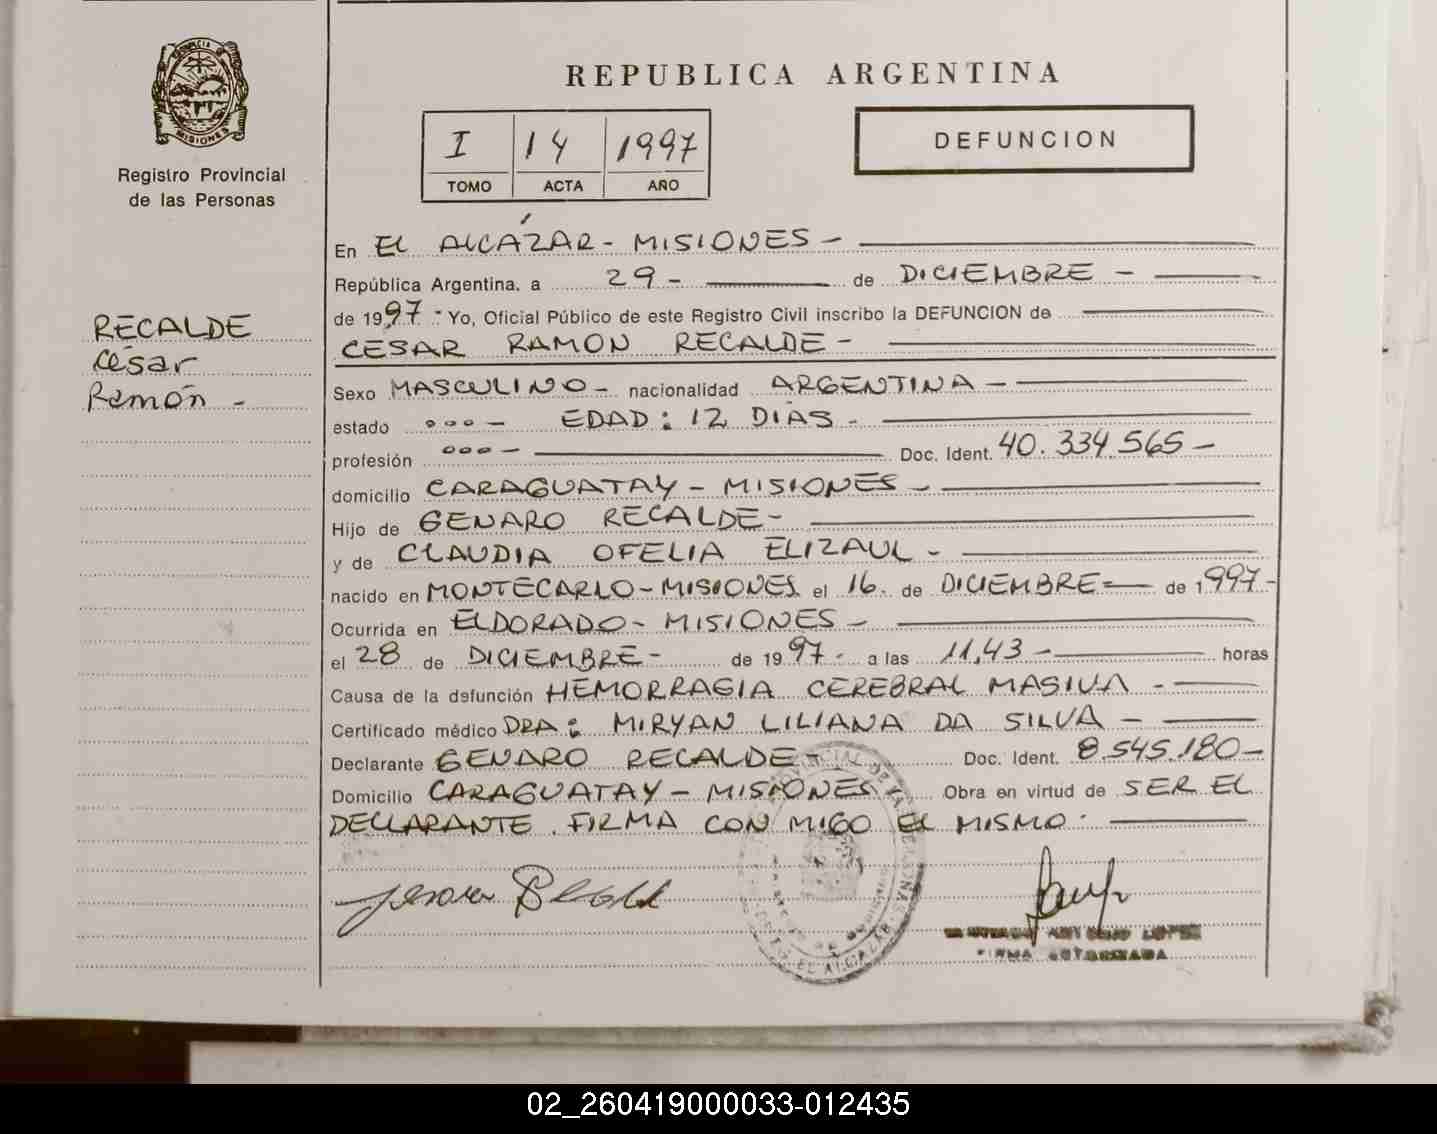 PROVINCIA DE
MISIONES
Registro Provincial
de las Personas
RECALDE
César
Ramón -
REPUBLICA ARGENTINA
I 14 1997
TOMO ACTA AÑO
DEFUNCION
En EL ALCÁZAR - MISIONES -
República Argentina, a 29 - de DICIEMBRE -
de 1997 - Yo, Oficial Público de este Registro Civil inscribo la DEFUNCION de
CESAR RAMON RECALDE -
Sexo MASCULINO - nacionalidad ARGENTINA -
estado ooo - EDAD: 12 DIAS -
profesión ooo - Doc. Ident. 40.334.565 -
domicilio CARAGUATAY - MISIONES -
Hijo de GENARO RECALDE -
y de CLAUDIA OFELIA ELIZAUL -
nacido en MONTECARLO - MISIONES el 16. de DICIEMBRE = de 1997 -
Ocurrida en ELDORADO - MISIONES -
el 28 de DICIEMBRE - de 1997 - a las 11,43 - horas
Causa de la defunción HEMORRAGIA CEREBRAL MASIVA -
Certificado médico DRA: MIRYAN LILIANA DA SILVA -
Declarante GENARO RECALDE - Doc. Ident. 8.545.180 -
Domicilio CARAGUATAY - MISIONES - Obra en virtud de SER EL
DECLARANTE. FIRMA CON MIGO EL MISMO -
ANTONIO LOPEZ
FIRMA AUTORIZADA
EL ALCAZAR
02_260419000033-012435